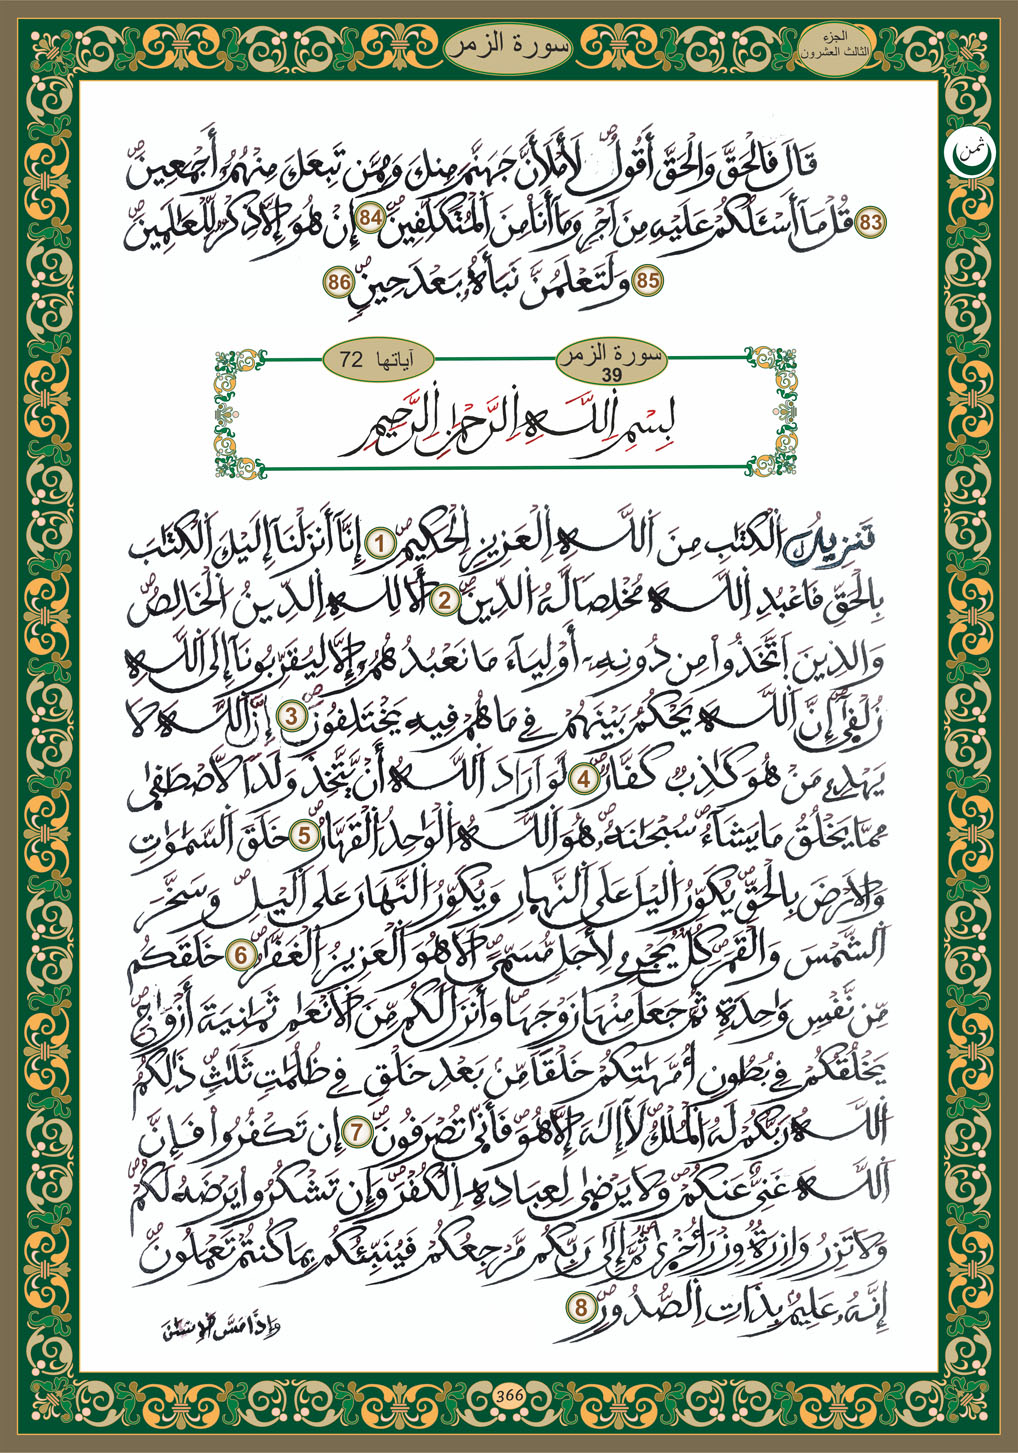 سورة الزمر
الجزء
الثالث العشرون
ثمن
قَالَ فَالْحَقَّ وَالْحَقَّ أَقُولُ لَأَمْلَأَنَّ جَهَنَّمَ مِنكَ وَمِمَّن تَبِعَكَ مِنْهُمُ أَجْمَعِينَ
83 قُلْ مَا أَسْـَٔلُكُمْ عَلَيْهِ مِنَ اَجْرٍ وَمَا أَنَا مِنَ اَلْمُتَكَلِّفِينَ 84 إِنْ هُوَ إِلَّا ذِكْرٌ لِّلْعَٰلَمِينَ
85 وَلَتَعْلَمُنَّ نَبَأَهُۥ بَعْدَ حِينٍ 86
سورة الزمر
39
آياتها 72
بِسْمِ اِللَّهِ اِلرَّحْمَٰنِ اِلرَّحِيمِ
تَنزِيلُ اُلْكِتَٰبِ مِنَ اَللَّهِ اِلْعَزِيزِ اِلْحَكِيمِ 1 إِنَّا أَنزَلْنَا إِلَيْكَ اَلْكِتَٰبَ
بِالْحَقِّ فَاعْبُدِ اِللَّهَ مُخْلِصاً لَّهُ اُلدِّينَ 2 أَلَا لِلهِ اِلدِّينُ اُلْخَالِصُ
وَالذِينَ اَتَّخَذُواْ مِن دُونِهِۦ أَوْلِيَآءَ مَا نَعْبُدُهُمُۥ إِلَّا لِيُقَرِّبُونَا إِلَى اَللَّهِ
زُلْفَىٰ إِنَّ اَللَّهَ يَحْكُمُ بَيْنَهُمْ فِي مَا هُمْ فِيهِ يَخْتَلِفُونَ 3 إِنَّ اَللَّهَ لَا
يَهْدِے مَنْ هُوَ كَٰذِبٌ كَفَّارٌ 4 لَّوَ اَرَادَ اَللَّهُ أَنْ يَّتَّخِذَ وَلَداً لَّاصْطَفَىٰ
مِمَّا يَخْلُقُ مَا يَشَآءُ سُبْحَٰنَهُۥ هُوَ اَللَّهُ اُلْوَٰحِدُ اُلْقَهَّارُ 5 خَلَقَ اَلسَّمَٰوَٰتِ
وَالْأَرْضَ بِالْحَقِّ يُكَوِّرُ اُلَّيْلَ عَلَى اَلنَّهَارِ وَيُكَوِّرُ اُلنَّهَارَ عَلَى اَلَّيْلِ وَسَخَّرَ
اَلشَّمْسَ وَالْقَمَرَ كُلٌّ يَجْرِے لِأَجَلٍ مُّسَمًّى أَلَا هُوَ اَلْعَزِيزُ اُلْغَفَّٰرُ 6 خَلَقَكُم
مِّن نَّفْسٍ وَٰحِدَةٍ ثُمَّ جَعَلَ مِنْهَا زَوْجَهَا وَأَنزَلَ لَكُم مِّنَ اَلْأَنْعَٰمِ ثَمَٰنِيَةَ أَزْوَٰجٍ
يَخْلُقُكُمْ فِي بُطُونِ أُمَّهَٰتِكُمْ خَلْقاً مِّنۢ بَعْدِ خَلْقٍ فِي ظُلُمَٰتٍ ثَلَٰثٍ ذَٰلِكُمُ
اُللَّهُ رَبُّكُمْ لَهُ اُلْمُلْكُ لَا إِلَٰهَ إِلَّا هُوَ فَأَنَّىٰ تُصْرَفُونَ 7 إِن تَكْفُرُواْ فَإِنَّ
اَللَّهَ غَنِيٌّ عَنكُمْ وَلَا يَرْضَىٰ لِعِبَادِهِ اِلْكُفْرَ وَإِن تَشْكُرُواْ يَرْضَهُ لَكُمْ
وَلَا تَزِرُ وَازِرَةٌ وِزْرَ أُخْرَىٰ ثُمَّ إِلَىٰ رَبِّكُم مَّرْجِعُكُمْ فَيُنَبِّئُكُم بِمَا كُنتُمْ تَعْمَلُونَ
إِنَّهُۥ عَلِيمٌۢ بِذَاتِ اِلصُّدُورِ 8
وَإِذَا مَسَّ اَلْإِنسَٰنَ
366